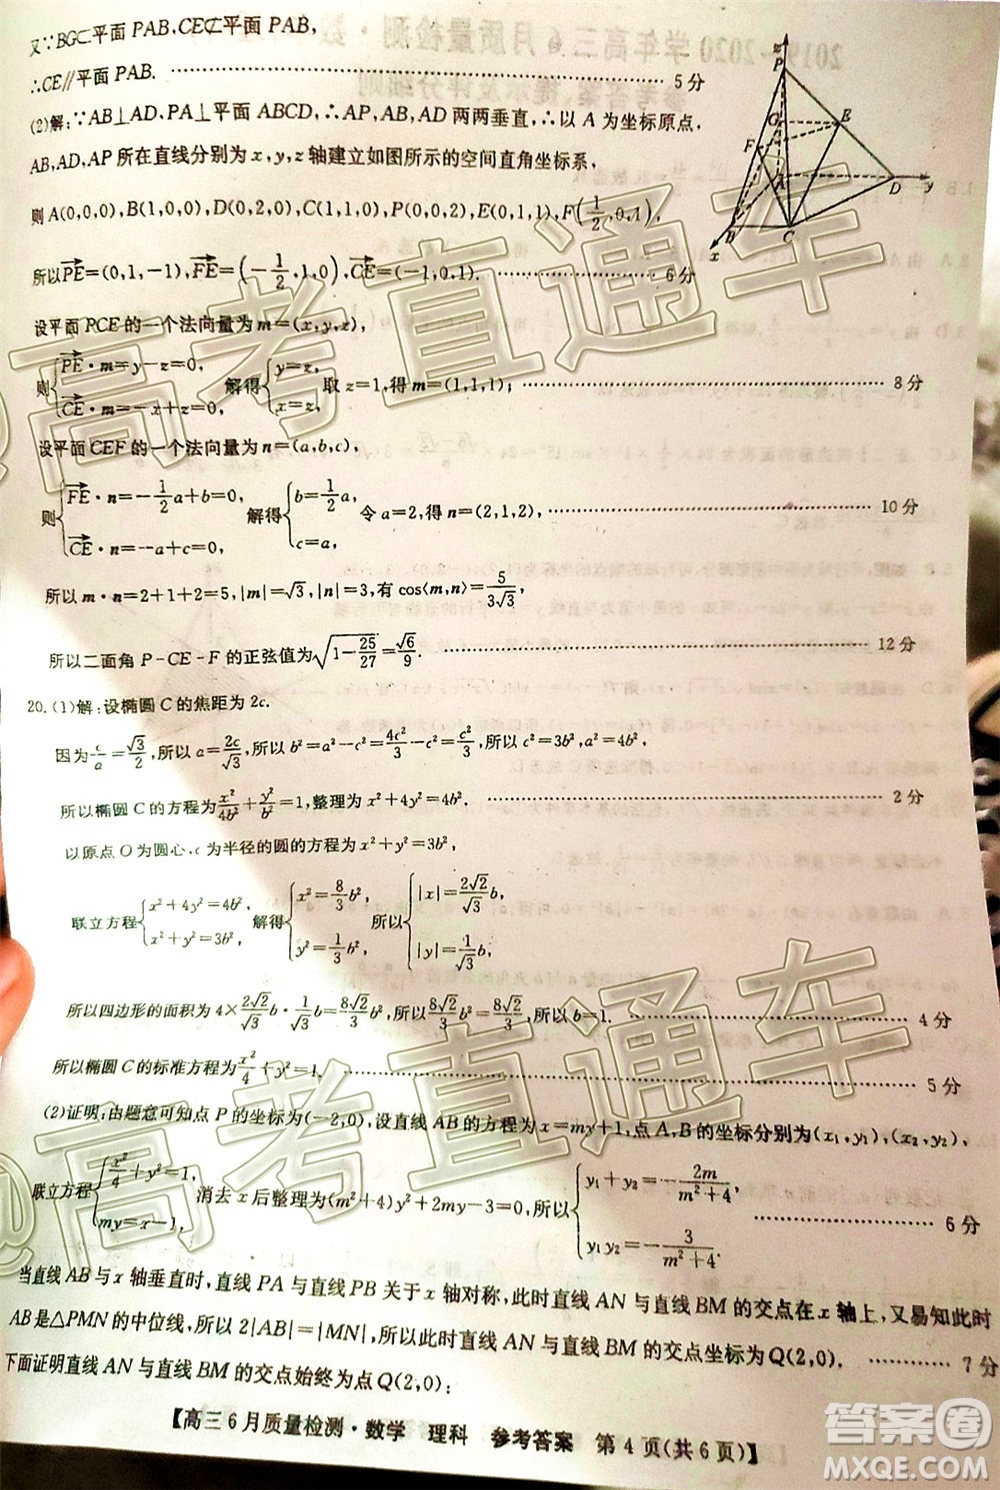 又∵BG⊂平面 PAB,CE⊄平面 PAB,
∴CE∥平面 PAB. 5分
(2)解:∵AB⊥AD,PA⊥平面 ABCD,∴AP,AB,AD 两两垂直,∴以 A 为坐标原点,
AB,AD,AP 所在直线分别为 x,y,z 轴建立如图所示的空间直角坐标系,
则 A(0,0,0),B(1,0,0),D(0,2,0),C(1,1,0),P(0,0,2),E(0,1,1),F(1/2,0,1),
z P G E F A D y B C x
所以PE=(0,1,-1),FE=(-1/2,1,0),CE=(-1,0,1). 6分
设平面 PCE 的一个法向量为 m=(x,y,z),
则{PE·m=y-z=0, CE·m=-x+z=0, 解得{y=z, x=z, 取 z=1,得 m=(1,1,1); 8分
设平面 CEF 的一个法向量为 n=(a,b,c),
则{FE·n=-1/2a+b=0, CE·n=-a+c=0, 解得{b=1/2a, c=a, 令 a=2,得 n=(2,1,2), 10分
所以 m·n=2+1+2=5,|m|=√3,|n|=3,有 cos⟨m,n⟩=5/3√3,
所以二面角 P-CE-F 的正弦值为√(1-25/27)=√6/9. 12分
20.(1)解:设椭圆 C 的焦距为 2c.
因为c/a=√3/2,所以 a=2c/√3,所以 b²=a²-c²=4c²/3-c²=c²/3,所以 c²=3b²,a²=4b²,
所以椭圆 C 的方程为x²/4b²+y²/b²=1,整理为 x²+4y²=4b². 2分
以原点 O 为圆心,c 为半径的圆的方程为 x²+y²=3b²,
联立方程{x²+4y²=4b², x²+y²=3b², 解得{x²=8/3b², y²=1/3b², 所以{|x|=2√2/√3b, |y|=1/√3b,
所以四边形的面积为 4×2√2/√3b·1/√3b=8√2/3b²,所以8√2/3b²=8√2/3,所以 b=1. 4分
所以椭圆 C 的标准方程为x²/4+y²=1. 5分
(2)证明:由题意可知点 P 的坐标为(-2,0),设直线 AB 的方程为 x=my+1,点 A,B 的坐标分别为(x₁,y₁),(x₂,y₂),
联立方程{x²/4+y²=1, my=x-1, 消去 x 后整理为(m²+4)y²+2my-3=0,所以{y₁+y₂=-2m/m²+4, y₁y₂=-3/m²+4. 6分
当直线 AB 与 x 轴垂直时,直线 PA 与直线 PB 关于 x 轴对称,此时直线 AN 与直线 BM 的交点在 x 轴上,又易知此时
AB 是△PMN 的中位线,所以 2|AB|=|MN|,所以此时直线 AN 与直线 BM 的交点坐标为 Q(2,0). 7分
下面证明直线 AN 与直线 BM 的交点始终为点 Q(2,0):
【高三6月质量检测·数学 理科 参考答案 第4页(共6页)】
@高考直通车
@高考直通车
答案圈
MXQE.COM